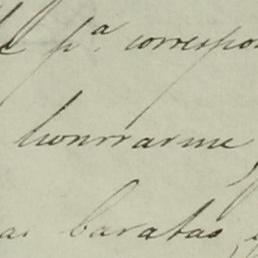 pª. correspon
honrrarme
as baratas,